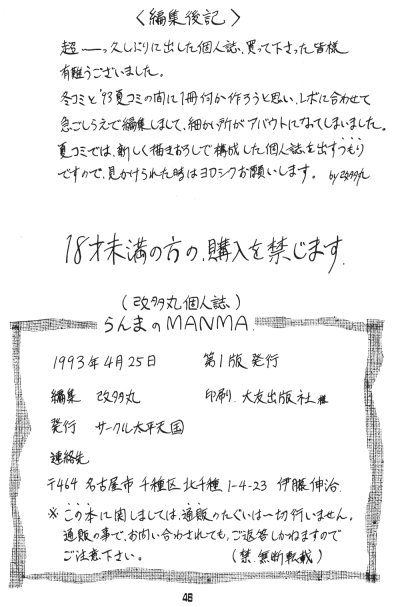 〈編集後記〉
超――っ久しぶりに出した個人誌、買って下さった皆様
有難うございました。
冬コミと'93夏コミの間に1冊何か作ろうと思い、レボに合わせて
急ごしらえで編集しまして、細かい所がアバウトになってしまいました。
夏コミでは、新しく描きおろしで構成した個人誌を出すつもり
ですので、見かけられた時はヨロシクお願いします。 by改多丸
18才未満の方の、購入を禁じます.
(改多丸個人誌)
らんまのMANMA.
1993年4月25日 第1版発行
編集 改多丸 印刷.大友出版社様
発行 サークル太平天国
連絡先
〒464 名古屋市千種区北千種1-4-23 伊藤伸治
※この本に関しましては、通販のたぐいは一切行いません。
通販の事で、お問い合わされても、ご返答しかねますので
ご注意下さい。 (禁.無断転載)
48